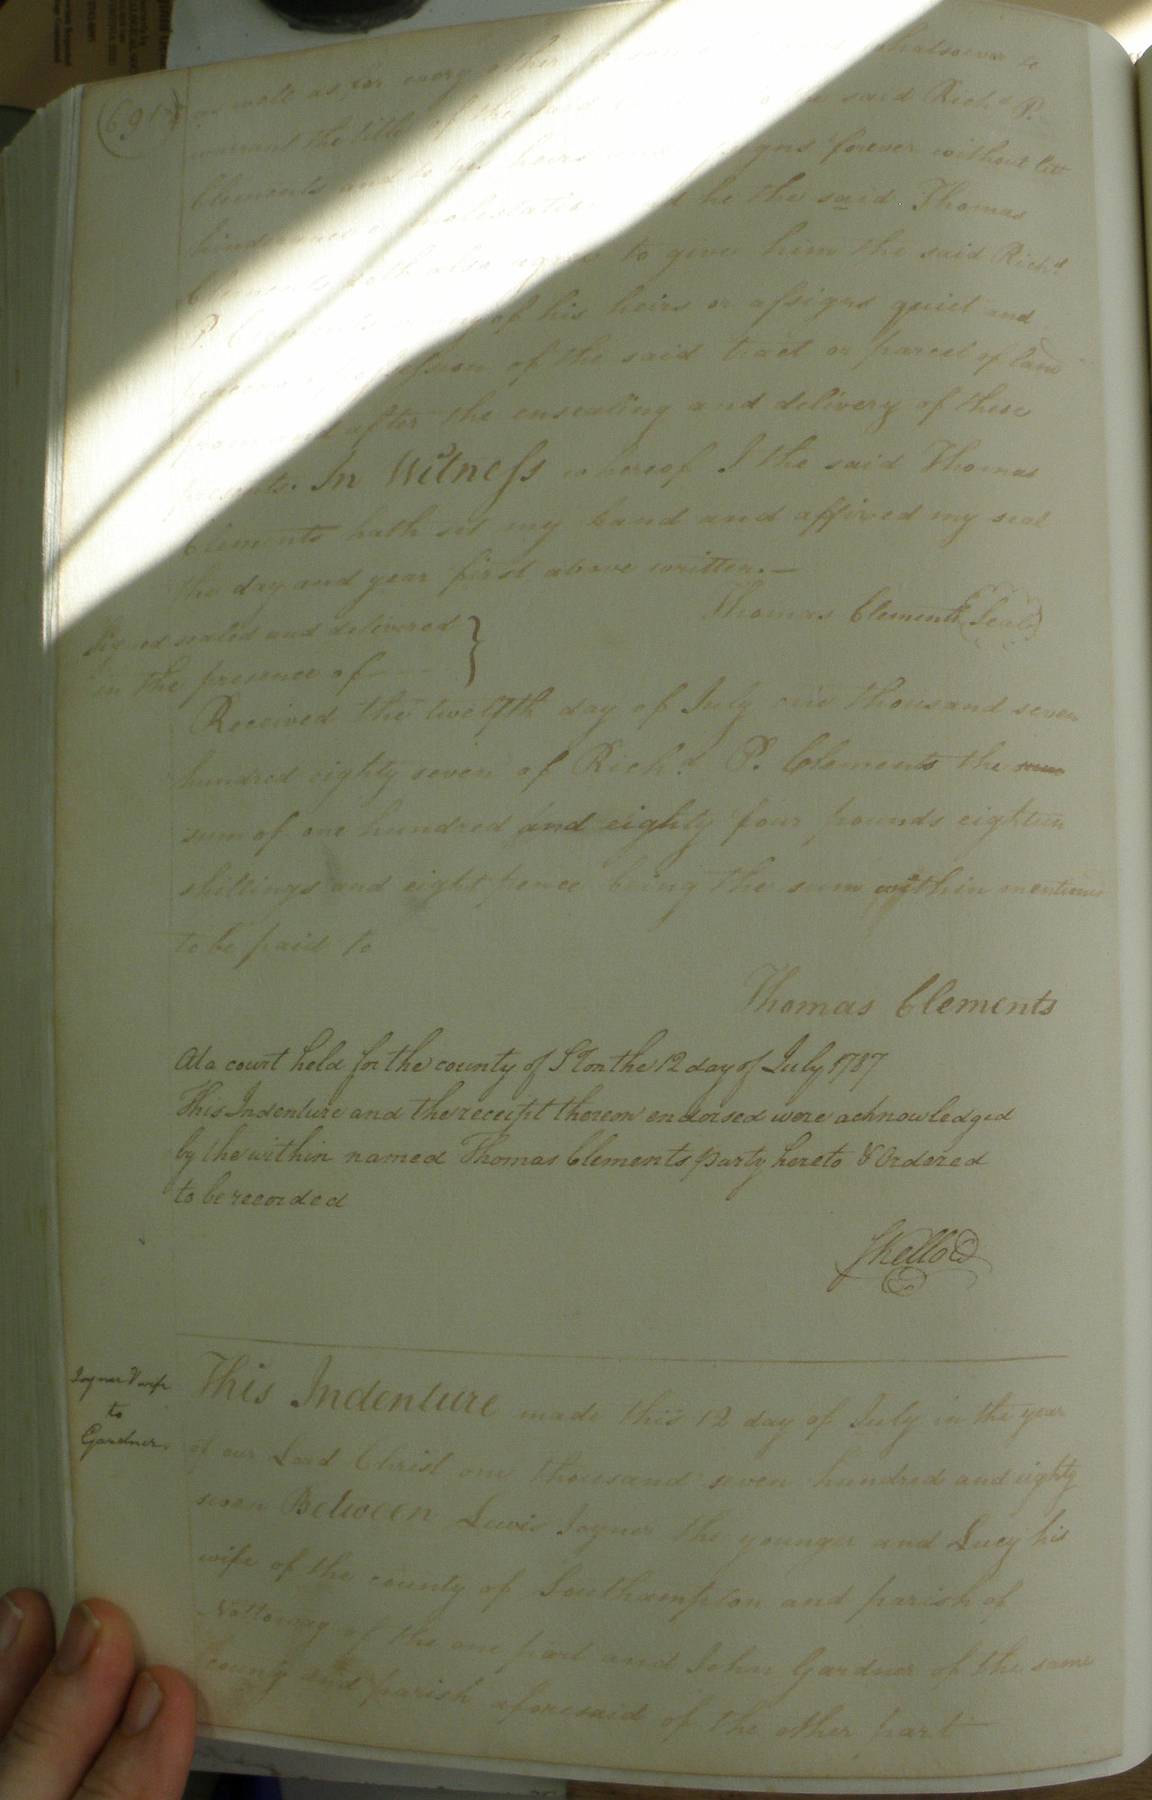 (691)
as well as for every other whatsoever to
warrant the title of the said Rich.d P.
Clements and to heirs forever without let
hinderance he the said Thomas
doth also agree to give him the said Rich.d
P. of his heirs or assigns quiet and
of the said tract or parcel of land
after the ensealing and delivery of these
In Witness whereof I the said Thomas
Clements hath set my hand and affixed my seal
the day and year first above written.—
Thomas Clements (Seal)
Signed sealed and delivered }
in the presence of
Received the twelfth day of July one thousand seven
hundred eighty seven of Rich.d P. Clements the
sum of one hundred and eighty four pounds eighteen
shillings and eight pence being the sum within mentioned
to be paid to
Thomas Clements
At a court held for the county of S Ton the 12 day of July 1787
This Indenture and the receipt thereon endorsed were acknowledged
by the within named Thomas Clements party hereto & Ordered
to be recorded
Joyner & wife
to
Gardner.
This Indenture made this 12 day of July in the year
of our Lord Christ one thousand seven hundred and eighty
seven Between Lewis Joyner the younger and Lucy his
wife of the county of Southampton and parish of
Nottoway of the one part and John Gardner of the same
county and parish aforesaid of the other part